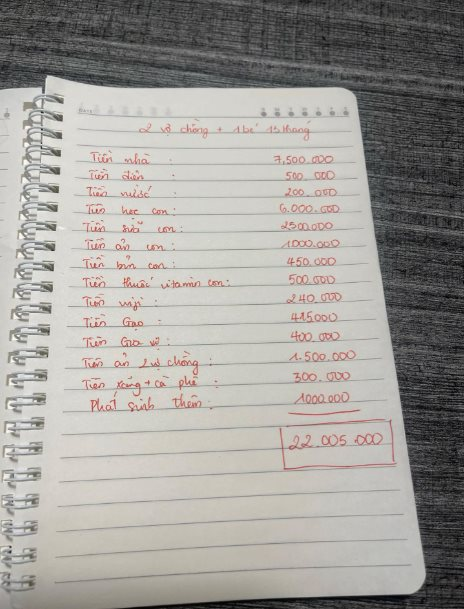 DATE
2 vợ chồng + 1 bé 13 tháng
Tiền nhà : 7,500.000
Tiền điện : 500.000
Tiền nước : 200.000
Tiền học con : 6.000.000
Tiền sữa con : 2500.000
Tiền ăn con : 1000.000
Tiền bỉm con : 450.000
Tiền thuốc vitamin con : 500.000
Tiền wifi : 240.000
Tiền Gạo : 415.000
Tiền Gia vị : 400.000
Tiền ăn 2 vợ chồng : 1.500.000
Tiền xăng + cà phê : 300.000
Phát sinh thêm : 1000.000
22.005.000